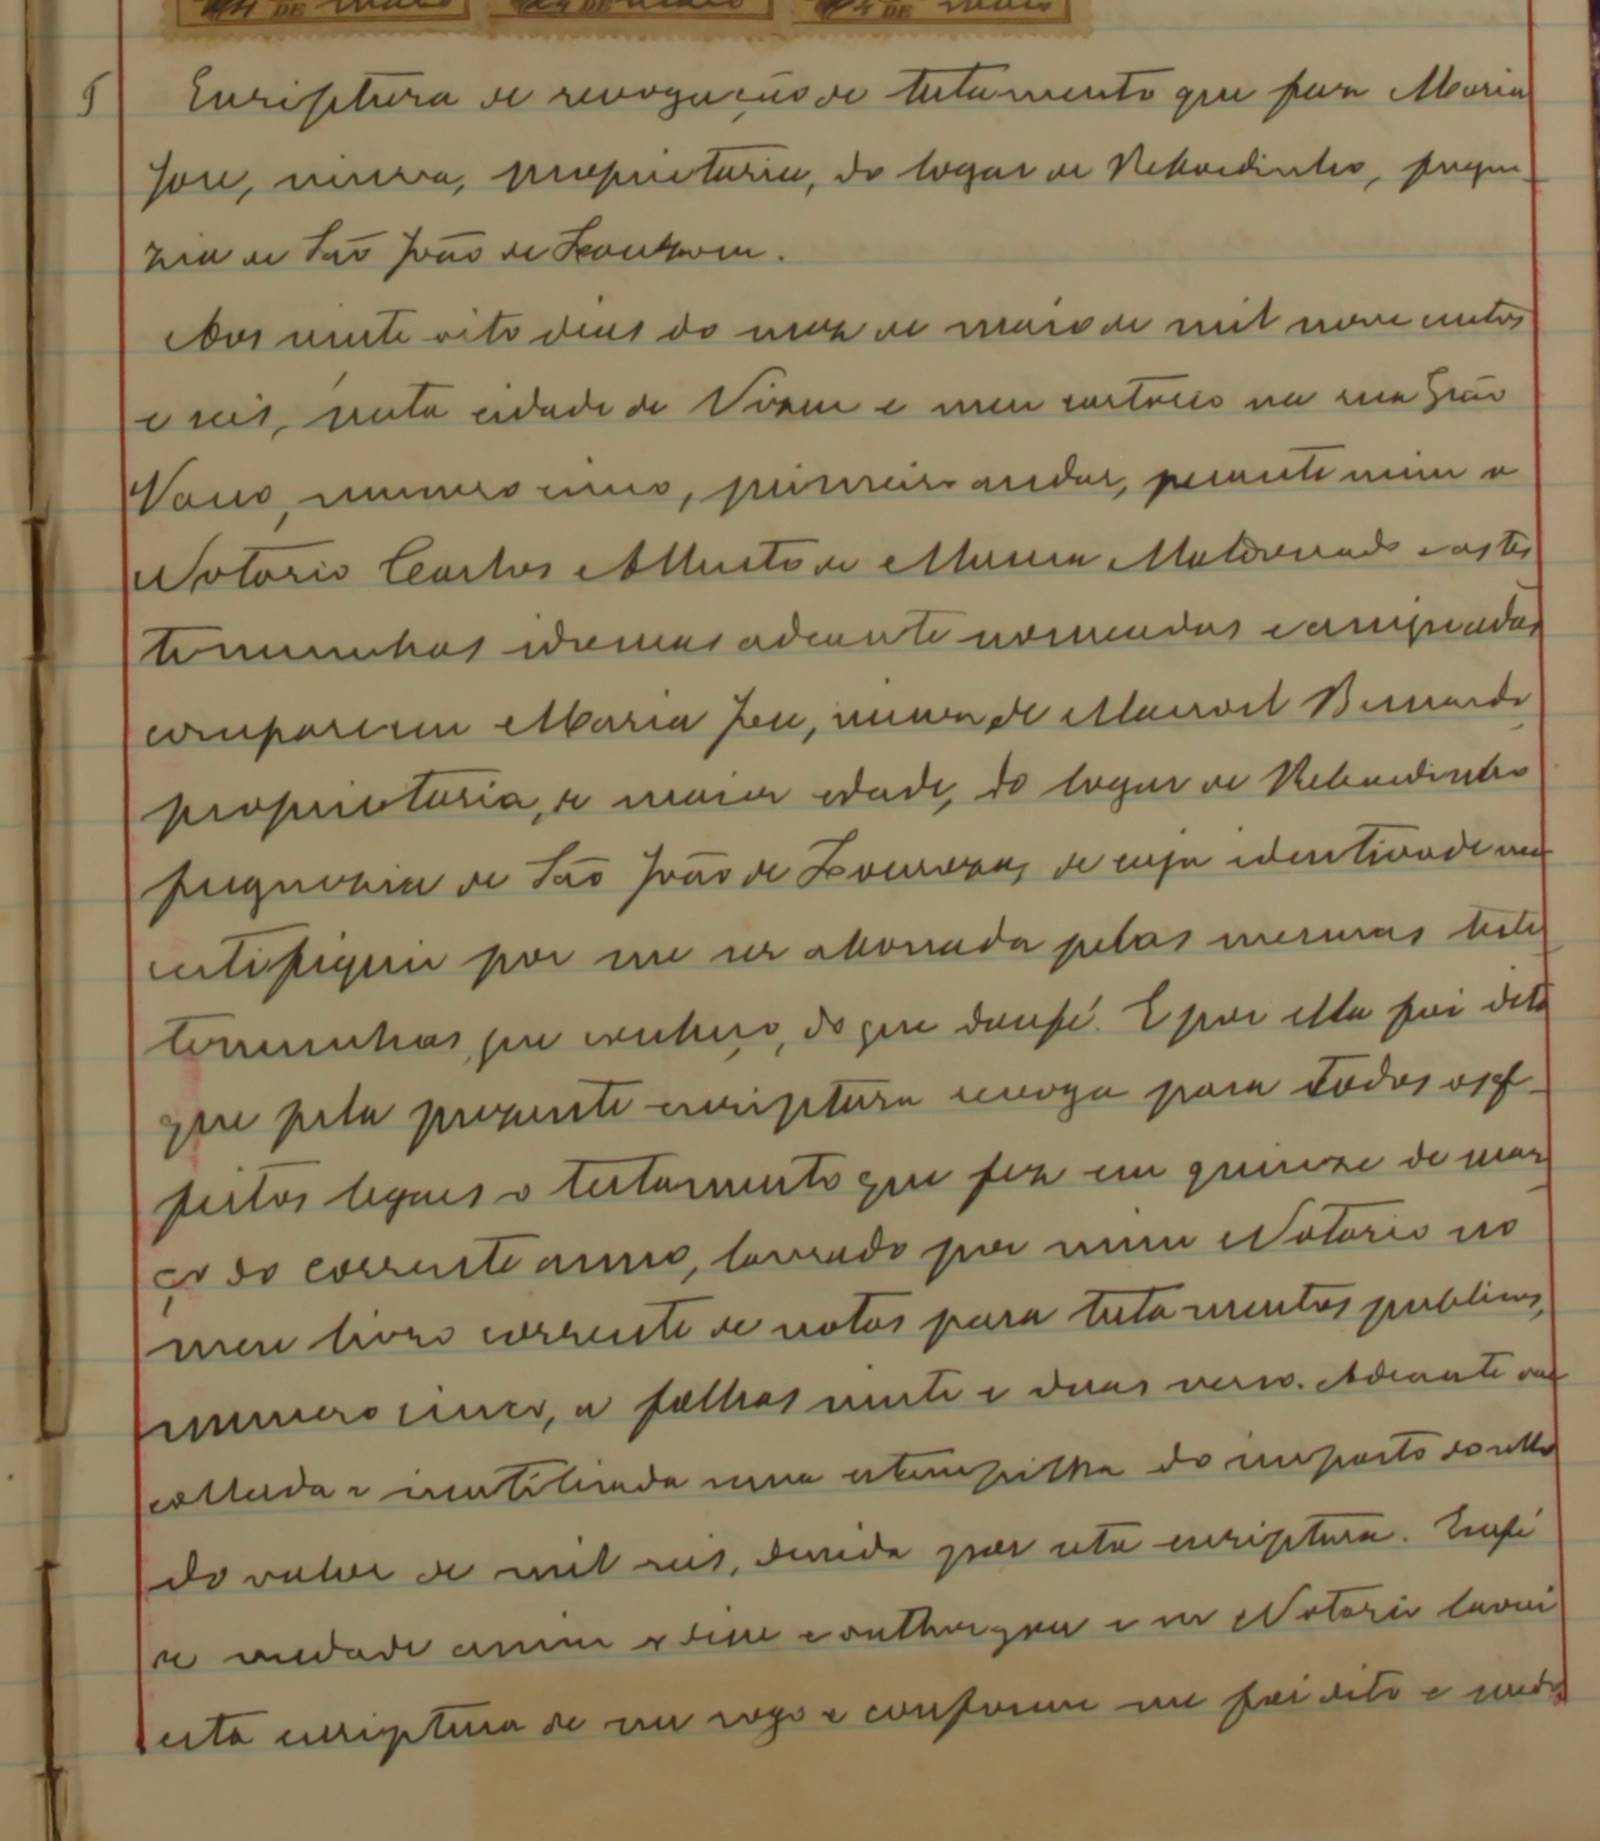 24 DE Maio 24 DE Maio 24 DE Maio
Escriptura de revogação de testamento que faz Maria
José, viuva, proprietaria, do logar de Rebordinho, fregue-
zia de São João de Lourosa.
Aos vinte oito dias do mez de maio de mil nove centos
e seis, nesta cidade de Vizeu e meu cartorio na rua Grão
Vasco, numero cinco, primeiro andar, perante mim o
Notario Carlos Alberto de Moura Maldonado e as tes
temunhas idoneas adeante nomeadas e assignadas
compareceu Maria José, viuva de Manoel Bernardo
proprietaria, de maior edade, do logar de Rebordinho
freguezia de São João de Lourosa, de cuja identidade me
certifiquei por me ser abonada pelas mesmas teste
temunhas, que conheço, do que dou fé. E por ella foi dito
que pela prezente escriptura revoga para todos os ef-
feitos legaes o testamento que fez em quinze de mar
ço do corrente anno, lavrado por mim Notario no
meu livro corrente de notas para testamentos publicos,
numero cinco, a folhas vinte e duas verso. Adeante vae
collada e inutilisada uma estampilha do imposto do sello
do valor de mil reis, devida por esta escriptura. Em fé
de verdade assim o disse e outhorgou e eu Notario lavrei
esta escriptura de seu rogo e conforme me foi dito e